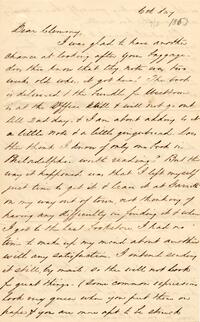 6th day
Dear Clemmy,
I was glad to have another
chance at looking after your luggage
two weeks old when it got here. The book
is delivered & the bundle for Westtown
is at the Office still & will not go out
till 2nd day, & I am about adding to it
a little note & a little gingerbread. Can
thee think I know of only one book in
Philadelphia worth reading? But the
way it happened was that I left myself
just time to get it & leave it at
on my way out of town, not thinking of
having any difficulty in finding it & when
I got to the last bookstore I had no
time to make up my mind about another
with any satisfaction. I intend sending
it still, by mail so thee will not look
for great things. (Some common expressions
look very queer when you put them on
paper) if you are once apt to be struck